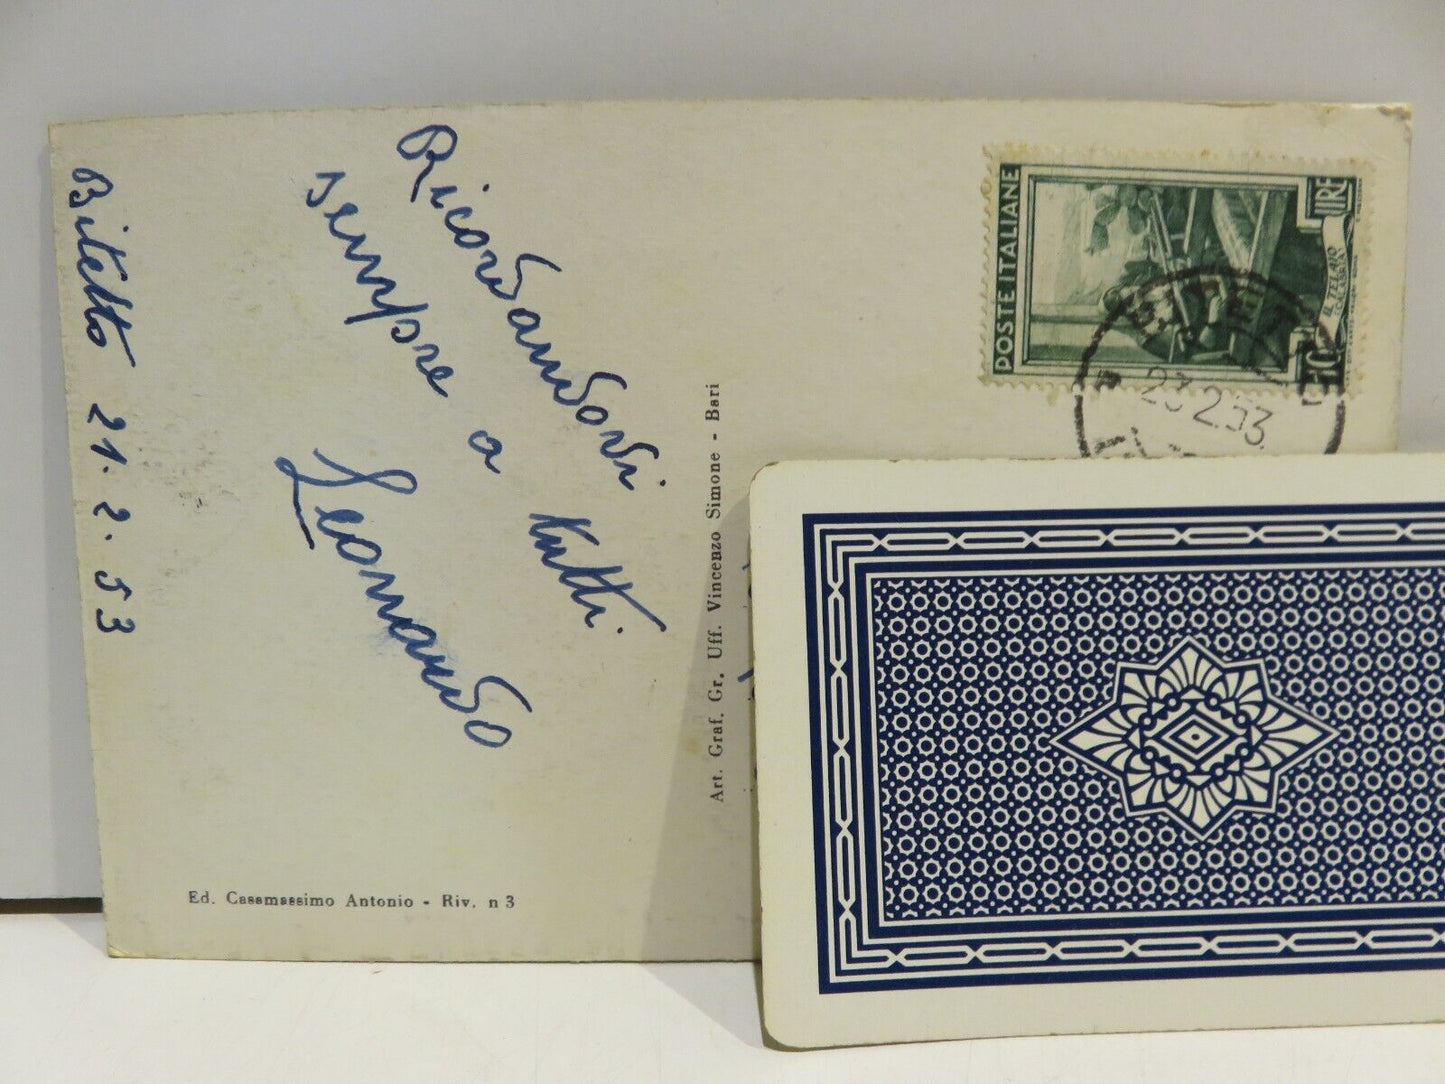 Bitetto 21.2.53
Ricordandovi
sempre a tutti
Leonardo
Ed. Casamassimo Antonio - Riv. n 3
Art. Graf. Gr. Uff. Vincenzo Simone - Bari
POSTE ITALIANE
LIRE
10
IL TELAIO
CALABRIA
23.2.53